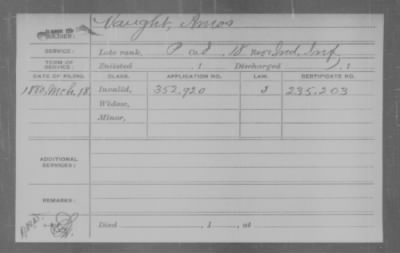 NAME OF SOLDIER: Vaught, Amos
SERVICE: Late rank, P Co. I, 18 Reg. Ind. Inf.
TERM OF SERVICE: Enlisted , 1 Discharged , 1
DATE OF FILING. CLASS. APPLICATION NO. LAW. CERTIFICATE NO.
1880, Mch 18. Invalid, 352,920 J 235,203
Widow,
Minor,
ADDITIONAL SERVICES:
REMARKS:
Died , 1 , at